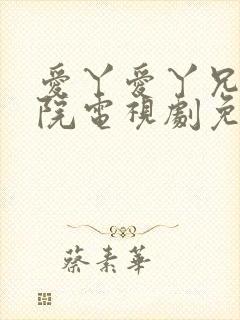 愛丫愛丫兄
院電視劇免
蔡素華